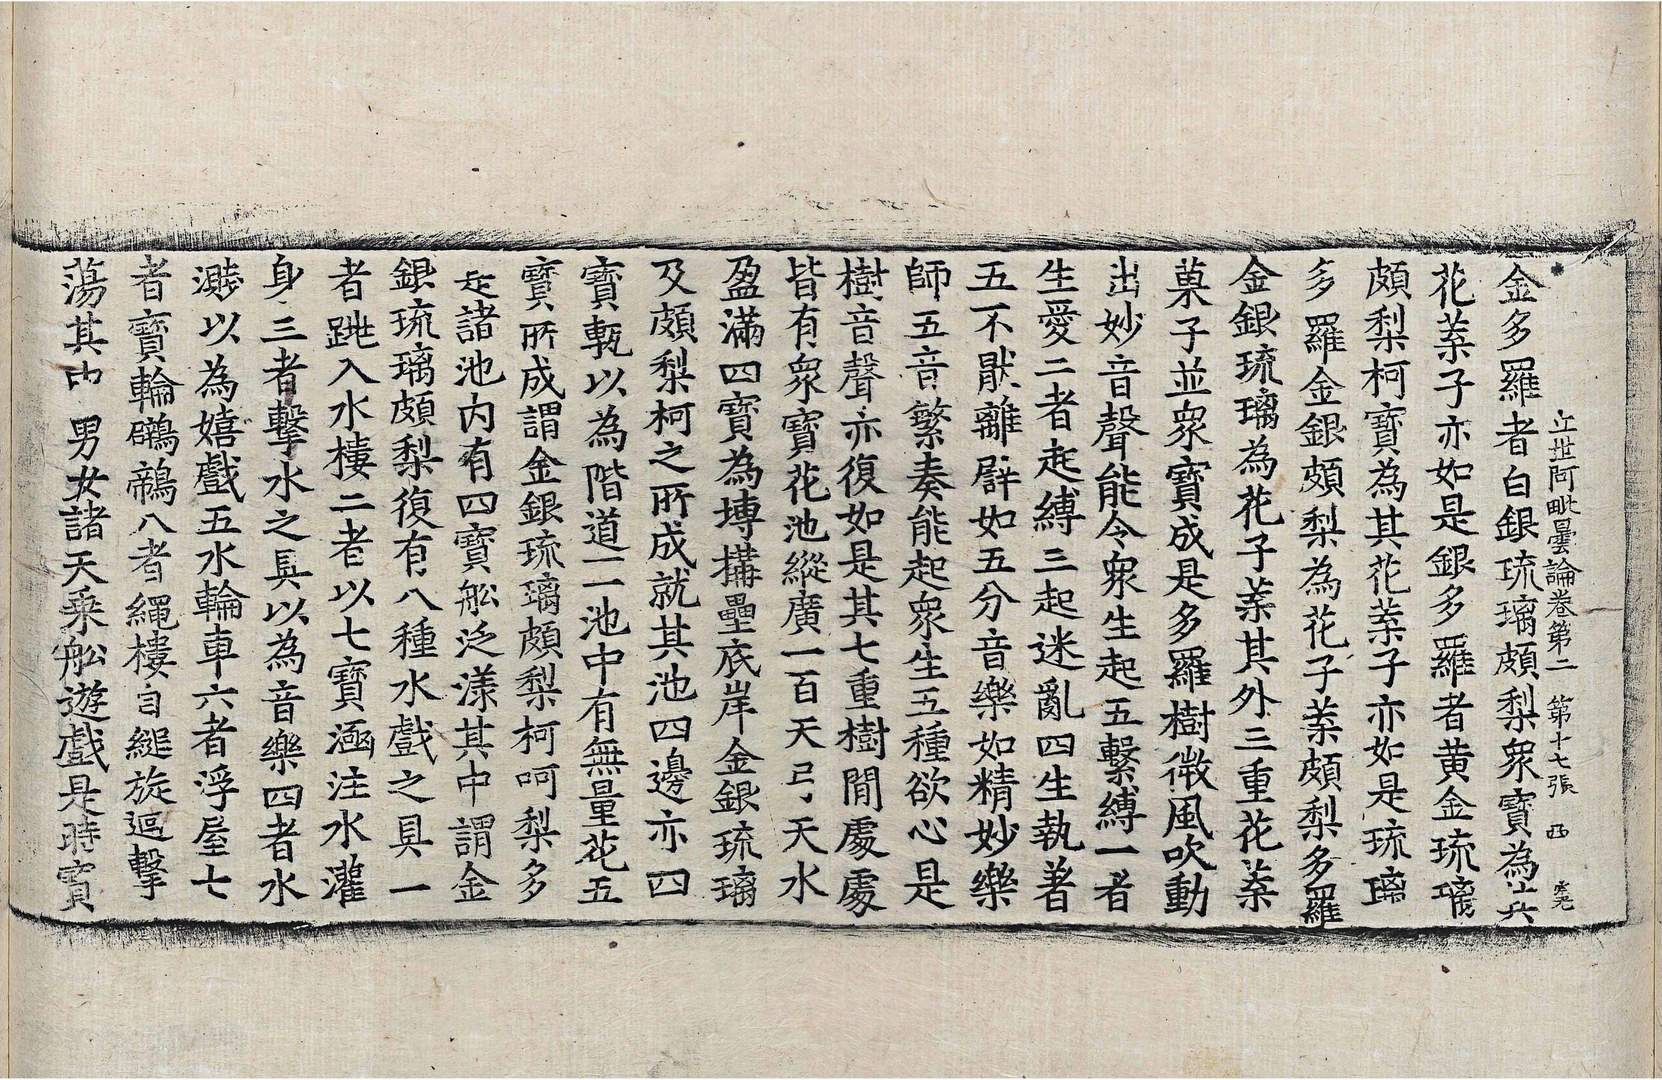 立世阿毗曇論卷第二 第十七張 西
金多羅者白銀琉璃頗梨眾寶為其
花葉子亦如是銀多羅者黄金琉璃
頗梨柯寶為其花葉子亦如是琉璃
多羅金銀頗梨為花子葉頗梨多羅
金銀琉璃為花子葉其外三重花葉
菓子並眾寶成是多羅樹微風吹動
出妙音聲能令眾生起五繫縛一者
生愛二者起縛三起迷亂四生執著
五不猒離辟如五分音樂如精妙樂
師五音繁奏能起眾生五種欲心是
樹音聲亦復如是其七重樹閒處處
皆有眾寶花池縱廣一百天弓天水
盈滿四寶為塼搆壘底岸金銀琉璃
及頗梨柯之所成就其池四邊亦四
寶塹以為階道一一池中有無量花五
寶所成謂金銀琉璃頗梨柯呵梨多
是諸池内有四寶舩泛漾其中謂金
銀琉璃頗梨復有八種水戲之具一
者跳入水樓二者以七寶涵注水灌
身三者擊水之具以為音樂四者水
濺以為嬉戲五水輪車六者浮屋七
者寶輪鸊鵜八者繩樓自縋旋迴擊
蕩其中男女諸天乘舩遊戲是時寶